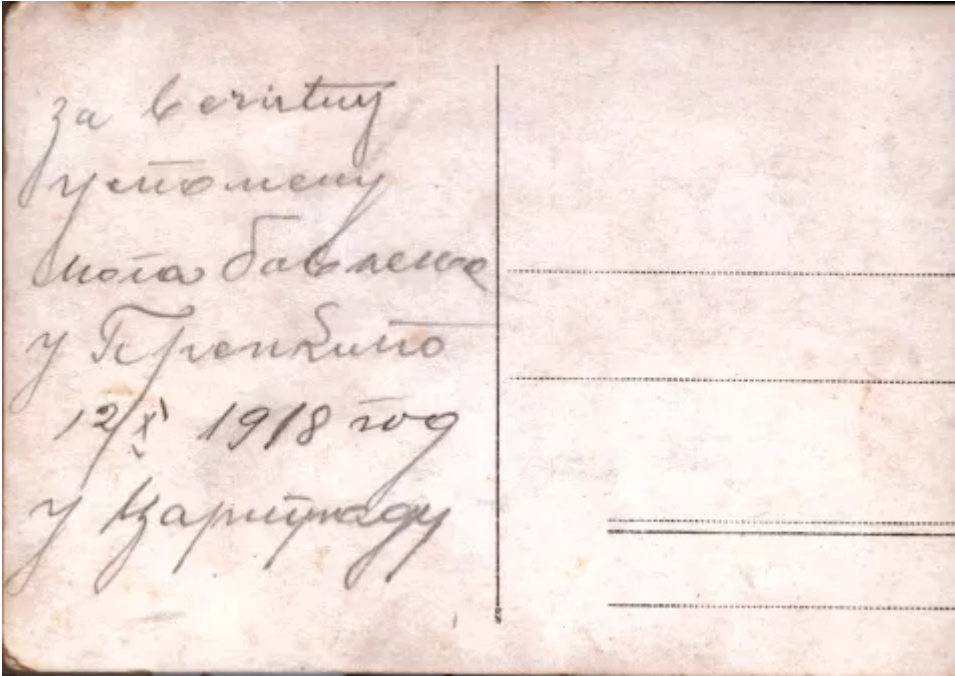 за вечиту
успомену
мога бавлења
у
12/XI 1918 год
у Цариграду